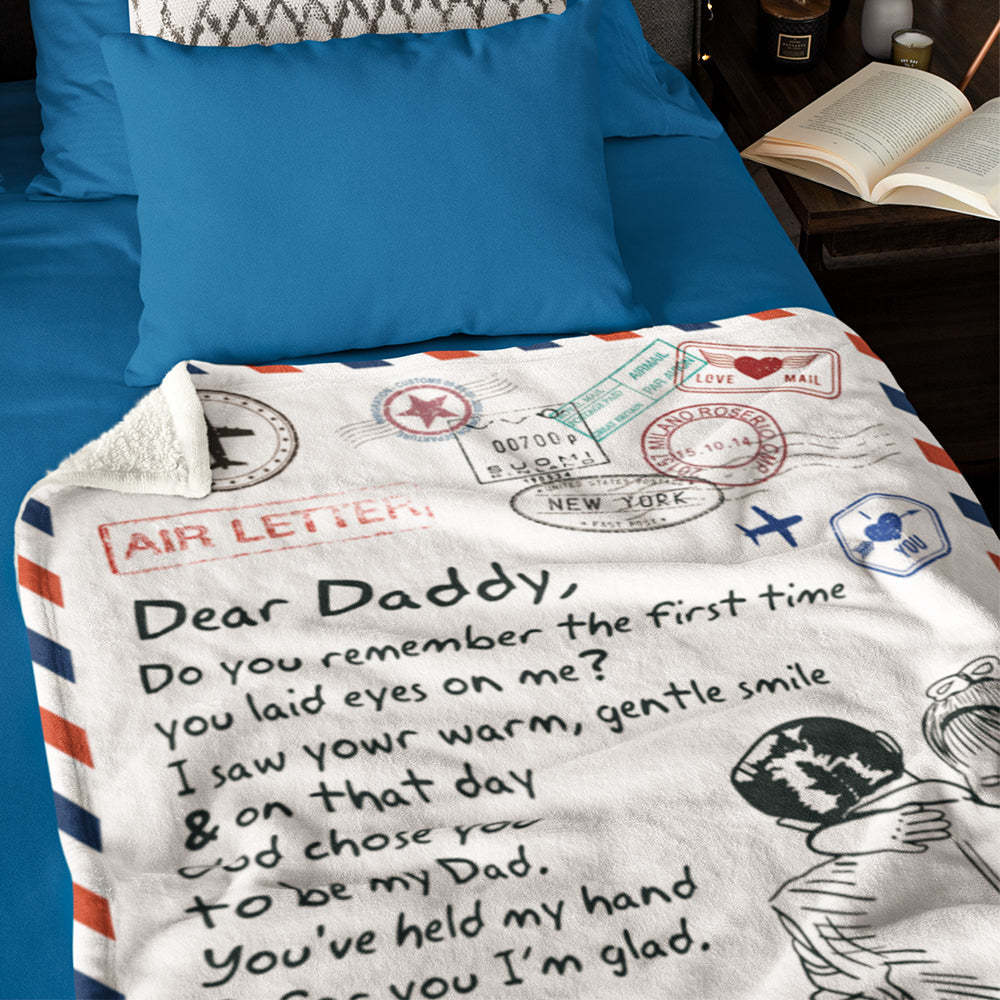 CUSTOMS
DEPARTURE
AIRMAIL
PAR AVION
LOVE MAIL
00700 P
SUOMI
FINLAND
MILANO ROSERIO CMP
15.10.14
NEW YORK
FAST POST
I
YOU
AIR LETTER
Dear Daddy,
Do you remember the first time
you laid eyes on me?
I saw yowr warm, gentle smile
& on that day
God chose you
to be my Dad.
You've held my hand
you I'm glad.